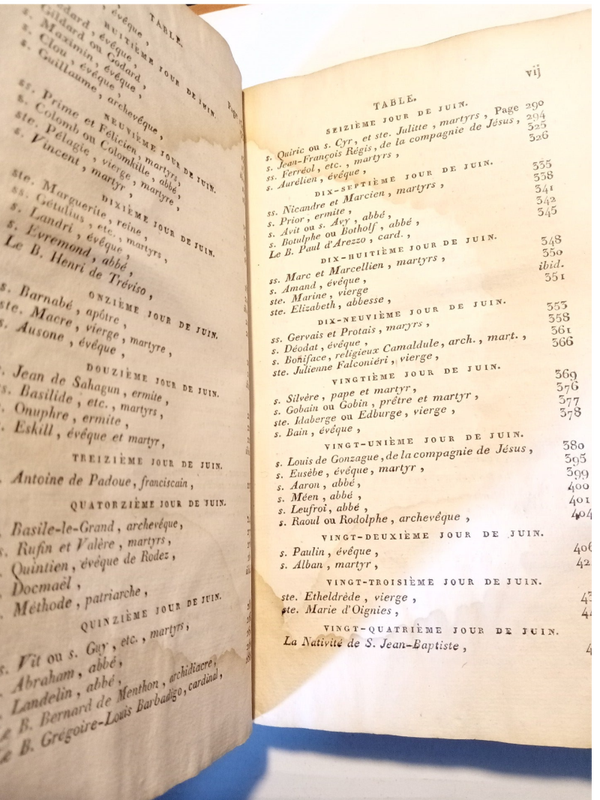 TABLE.
s. Médard, évêque,
s. Gildard ou Godard, évêque,
s. Maximin, évêque,
s. Clou, évêque,
s. Guillaume, archevêque,
HUITIÈME JOUR DE JUIN.
Page
NEUVIÈME JOUR DE JUIN.
ss. Prime et Félicien, martyrs,
s. Colomb ou Colombkille, abbé,
ste. Pélagie, vierge, martyre,
s. Vincent, martyr,
DIXIÈME JOUR DE JUIN.
ste. Marguerite, reine,
ss. Gétulius, etc., martyrs,
s. Landri, évêque,
s. Evremond, abbé,
Le B. Henri de Tréviso,
ONZIÈME JOUR DE JUIN.
s. Barnabé, apôtre,
ste. Macre, vierge, martyre,
s. Ausone, évêque,
DOUZIÈME JOUR DE JUIN.
Jean de Sahagun, ermite,
Basilide, etc., martyrs,
Onuphre, ermite,
Eskill, évêque et martyr,
TREIZIÈME JOUR DE JUIN.
Antoine de Padoue, franciscain,
QUATORZIÈME JOUR DE JUIN.
Basile-le-Grand, archevêque,
Rufin et Valère, martyrs,
Quintien, évêque de Rodez,
Docmaël,
Méthode, patriarche,
QUINZIÈME JOUR DE JUIN.
s. Vit ou s. Guy, etc., martyrs,
Abraham, abbé,
Landelin, abbé,
Le B. Bernard de Menthon, archidiacre,
Le B. Grégoire-Louis Barbadigo, cardinal,
vij
TABLE.
SEIZIÈME JOUR DE JUIN.
s. Quiric ou s. Cyr, et ste. Julitte, martyrs, Page 290
s. Jean-François Régis, de la compagnie de Jésus, 294
ss. Ferréol, etc., martyrs, 325
s. Aurélien, évêque, 326
DIX-SEPTIÈME JOUR DE JUIN.
ss. Nicandre et Marcien, martyrs, 335
s. Prior, ermite, 338
s. Avit ou s. Avy, abbé, 341
s. Botulphe ou Botholf, abbé, 342
Le B. Paul d'Arezzo, card., 345
DIX-HUITIÈME JOUR DE JUIN.
ss. Marc et Marcellien, martyrs, 348
s. Amand, évêque, 350
ste. Marine, vierge ibid.
ste. Elizabeth, abbesse, 351
DIX-NEUVIÈME JOUR DE JUIN.
ss. Gervais et Protais, maryrs, 353
s. Déodat, évêque, 358
s. Boniface, religieux Camaldule, arch., mart., 361
ste. Julienne Falconiéri, vierge, 366
VINGTIÈME JOUR DE JUIN.
s. Silvère, pape et martyr, 369
s. Gobain ou Gobin, prêtre et martyr, 376
ste. Idaberge ou Edburge, vierge, 377
s. Bain, évêque, 378
VINGT-UNIÈME JOUR DE JUIN.
s. Louis de Gonzague, de la compagnie de Jésus, 380
s. Eusèbe, évêque, martyr, 395
s. Aaron, abbé, 399
s. Méen, abbé, 400
s. Leufroi, abbé, 401
s. Raoul ou Rodolphe, archevêque, 404
VINGT-DEUXIÈME JOUR DE JUIN.
s. Paulin, évêque, 406
s. Alban, martyr, 42
VINGT-TROISIÈME JOUR DE JUIN.
ste. Etheldrède, vierge, 4
ste. Marie d'Oignies, 4
VINGT-QUATRIÈME JOUR DE JUIN.
La Nativité de S. Jean-Baptiste, 4